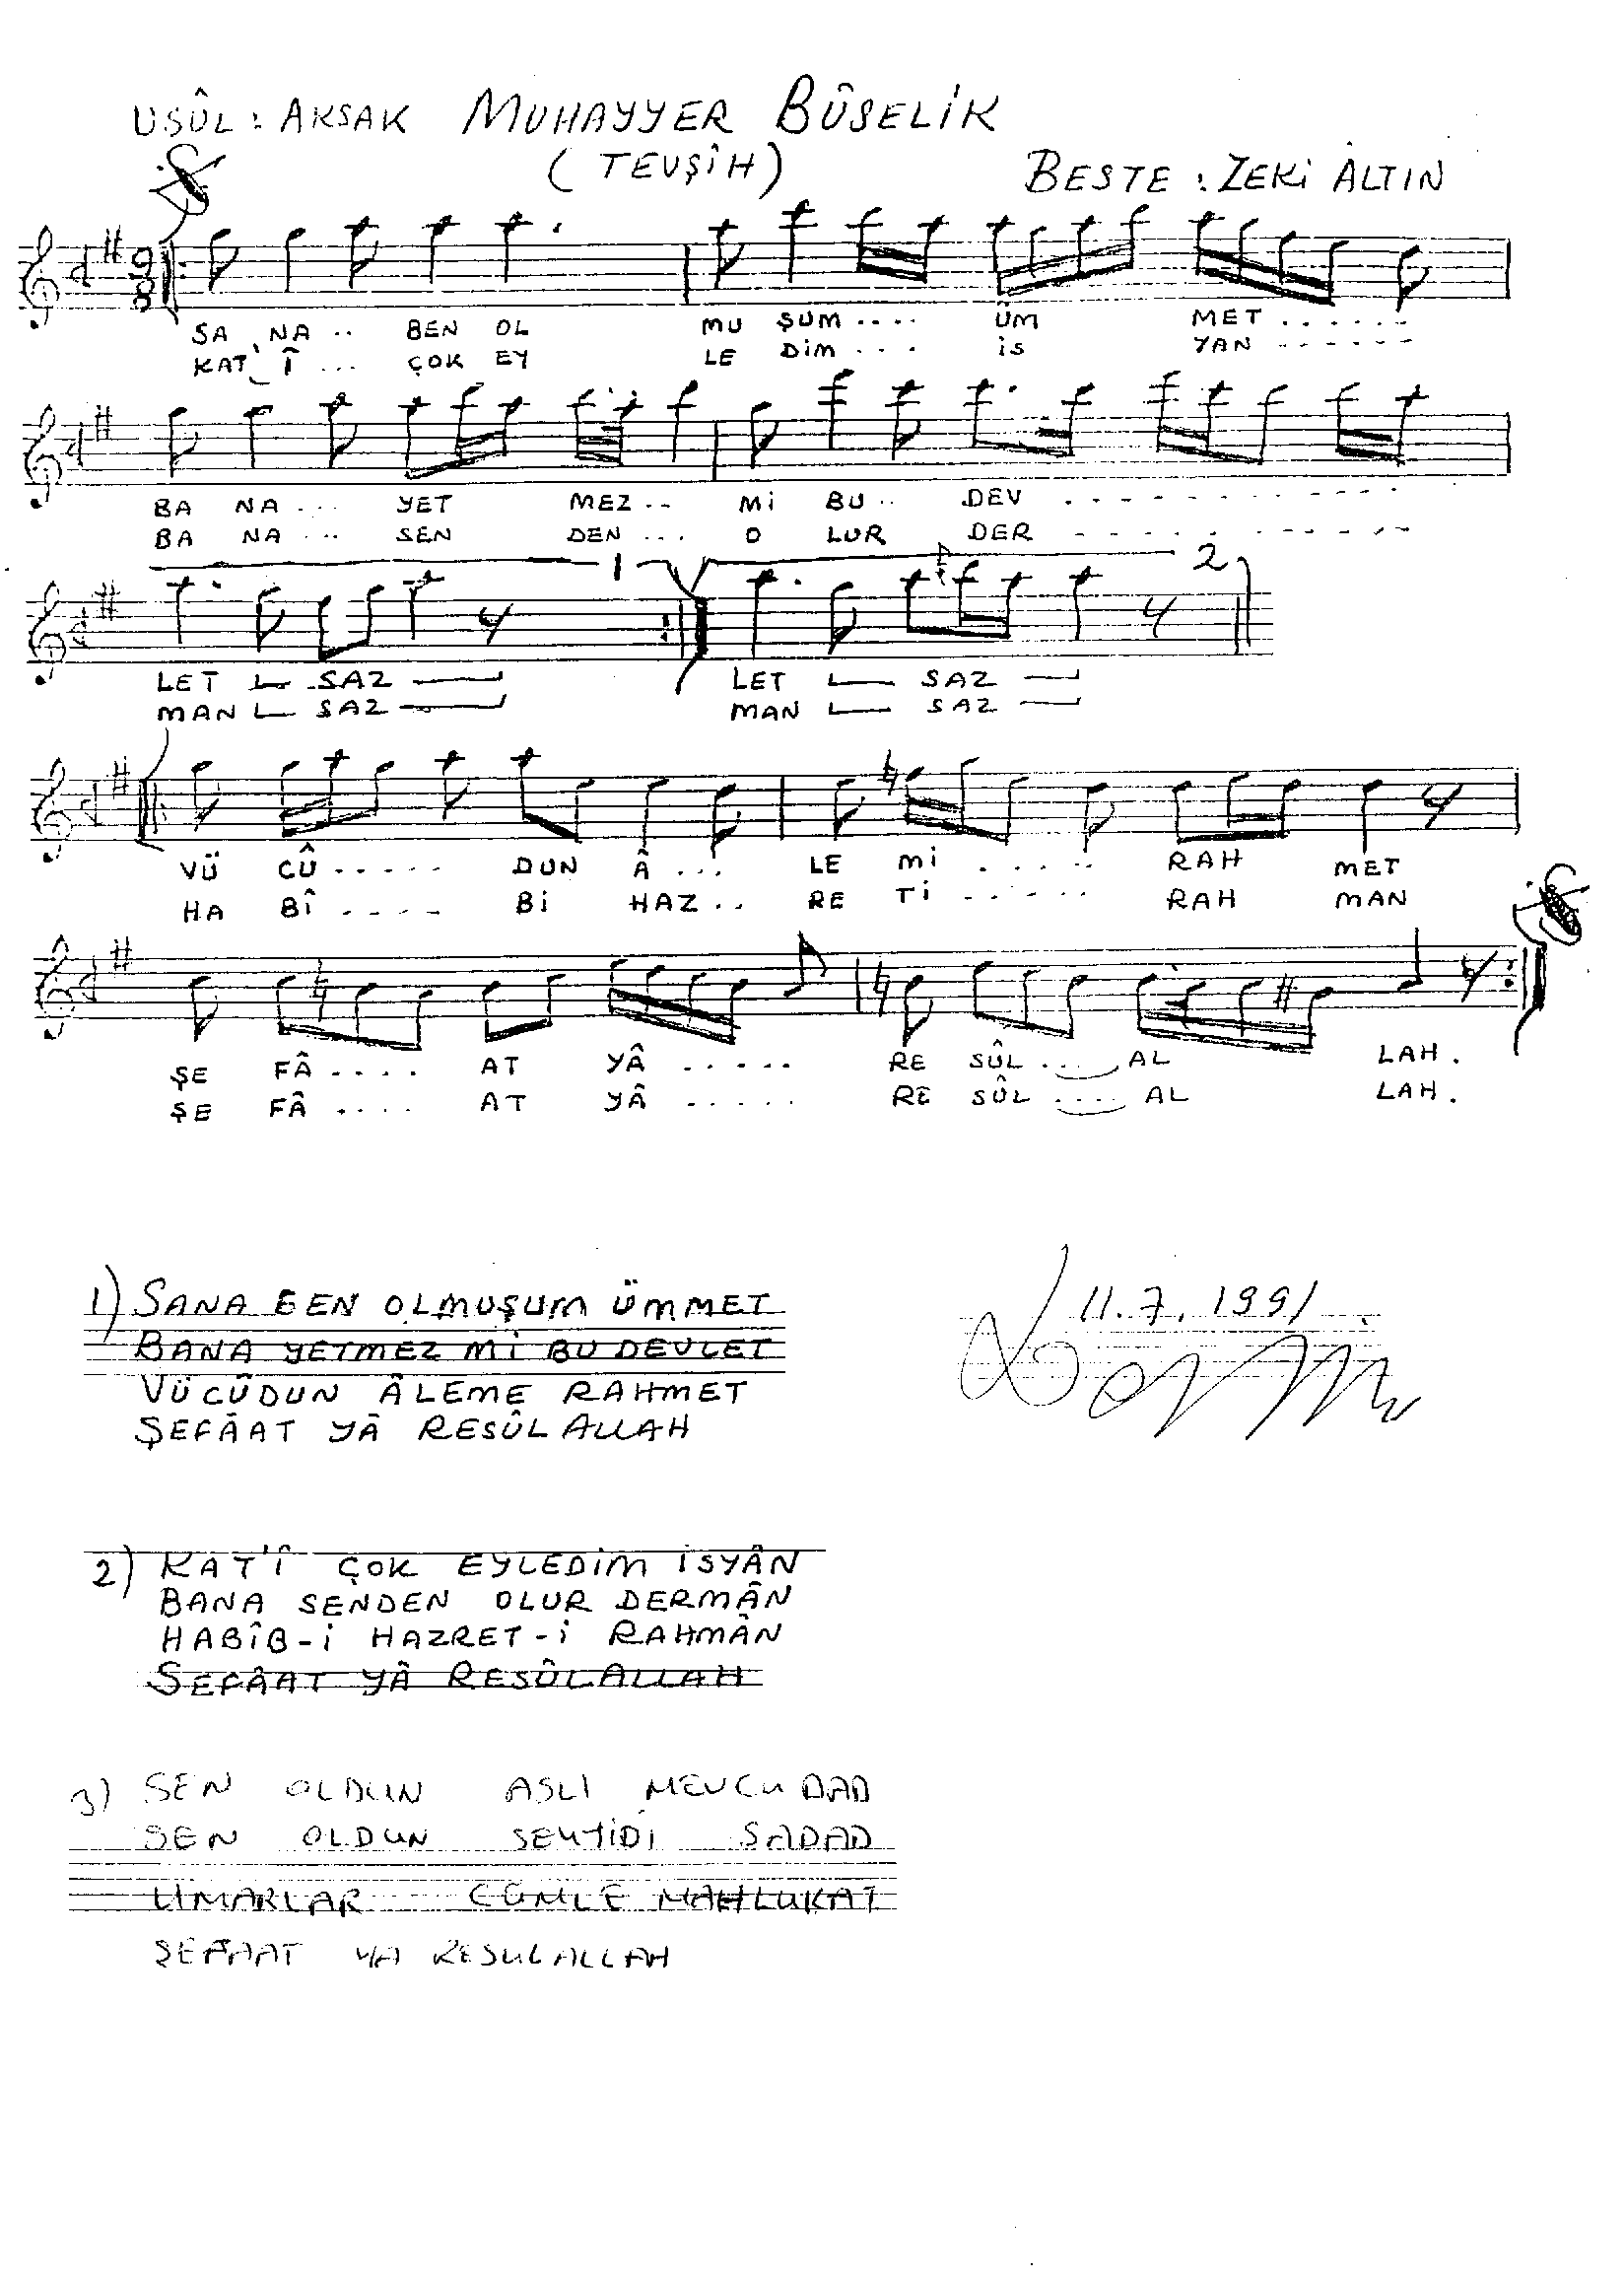 USÛL : AKSAK MUHAYYER BÛSELİK
(TEVŞİH)
BESTE : ZEKİ ALTIN
9
8
SA NA .. BEN OL MU ŞUM .... ÜM MET ......
KAT' Î ... ÇOK EY LE DİM ... İS YAN ......
BA NA ... YET MEZ .. Mİ BU .. DEV ............
BA NA ... SEN DEN ... O LUR DER ............
1 2
LET SAZ LET SAZ
MAN SAZ MAN SAZ
VÜ CÛ ..... DUN Â ... LE Mİ ..... RAH MET
HA BÎ .... Bİ HAZ .. RE Tİ ..... RAH MAN
ŞE FÂ .... AT YÂ ..... RE SÛL .... AL LAH .
ŞE FÂ .... AT YÂ ..... RE SÛL .... AL LAH .
1) SANA BEN OLMUŞUM ÜMMET
BANA YETMEZ Mİ BU DEVLET
VÜCÛDUN ÂLEME RAHMET
ŞEFÂAT YÂ RESÛLALLAH
11.7.1991
2) KAT'Î ÇOK EYLEDİM İSYÂN
BANA SENDEN OLUR DERMÂN
HABÎB-İ HAZRET-İ RAHMÂN
ŞEFÂAT YÂ RESÛLALLAH
3) SEN OLDUN ASLI MEVCUDAD
SEN OLDUN SEYYİDİ SADAD
UMARLAR CÜMLE MAHLUKAT
ŞEFAAT YA RESULALLAH